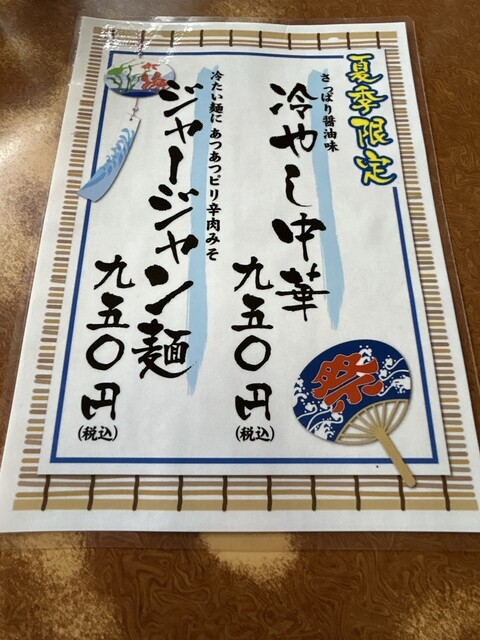 夏季限定
さっぱり醤油味
冷やし中華
九五〇円
(税込)
冷たい麺に あつあつピリ辛肉みそ
ジャージャン麺
九五〇円
(税込)
祭